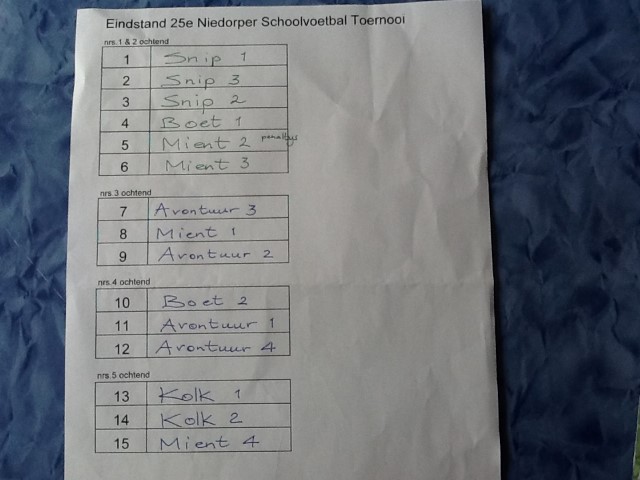 Eindstand 25e Niedorper Schoolvoetbal Toernooi
nrs.1 & 2 ochtend
1 Snip 1
2 Snip 3
3 Snip 2
4 Boet 1
5 Mient 2 penaltys
6 Mient 3
nrs.3 ochtend
7 Avontuur 3
8 Mient 1
9 Avontuur 2
nrs.4 ochtend
10 Boet 2
11 Avontuur 1
12 Avontuur 4
nrs.5 ochtend
13 Kolk 1
14 Kolk 2
15 Mient 4